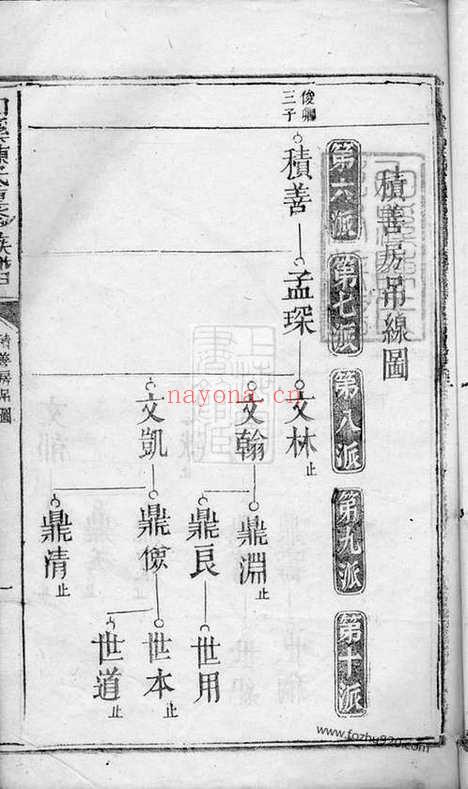 積善房吊線圖
第六派
第七派
第八派
第九派
第十派
俊卿
三子
積善
孟琛
文林止
文翰
文凱
鼎淵止
鼎良
鼎儉
鼎清止
世用
世本止
世道止
積善房吊圖
一
nayona.cn
www.fozhu920.com